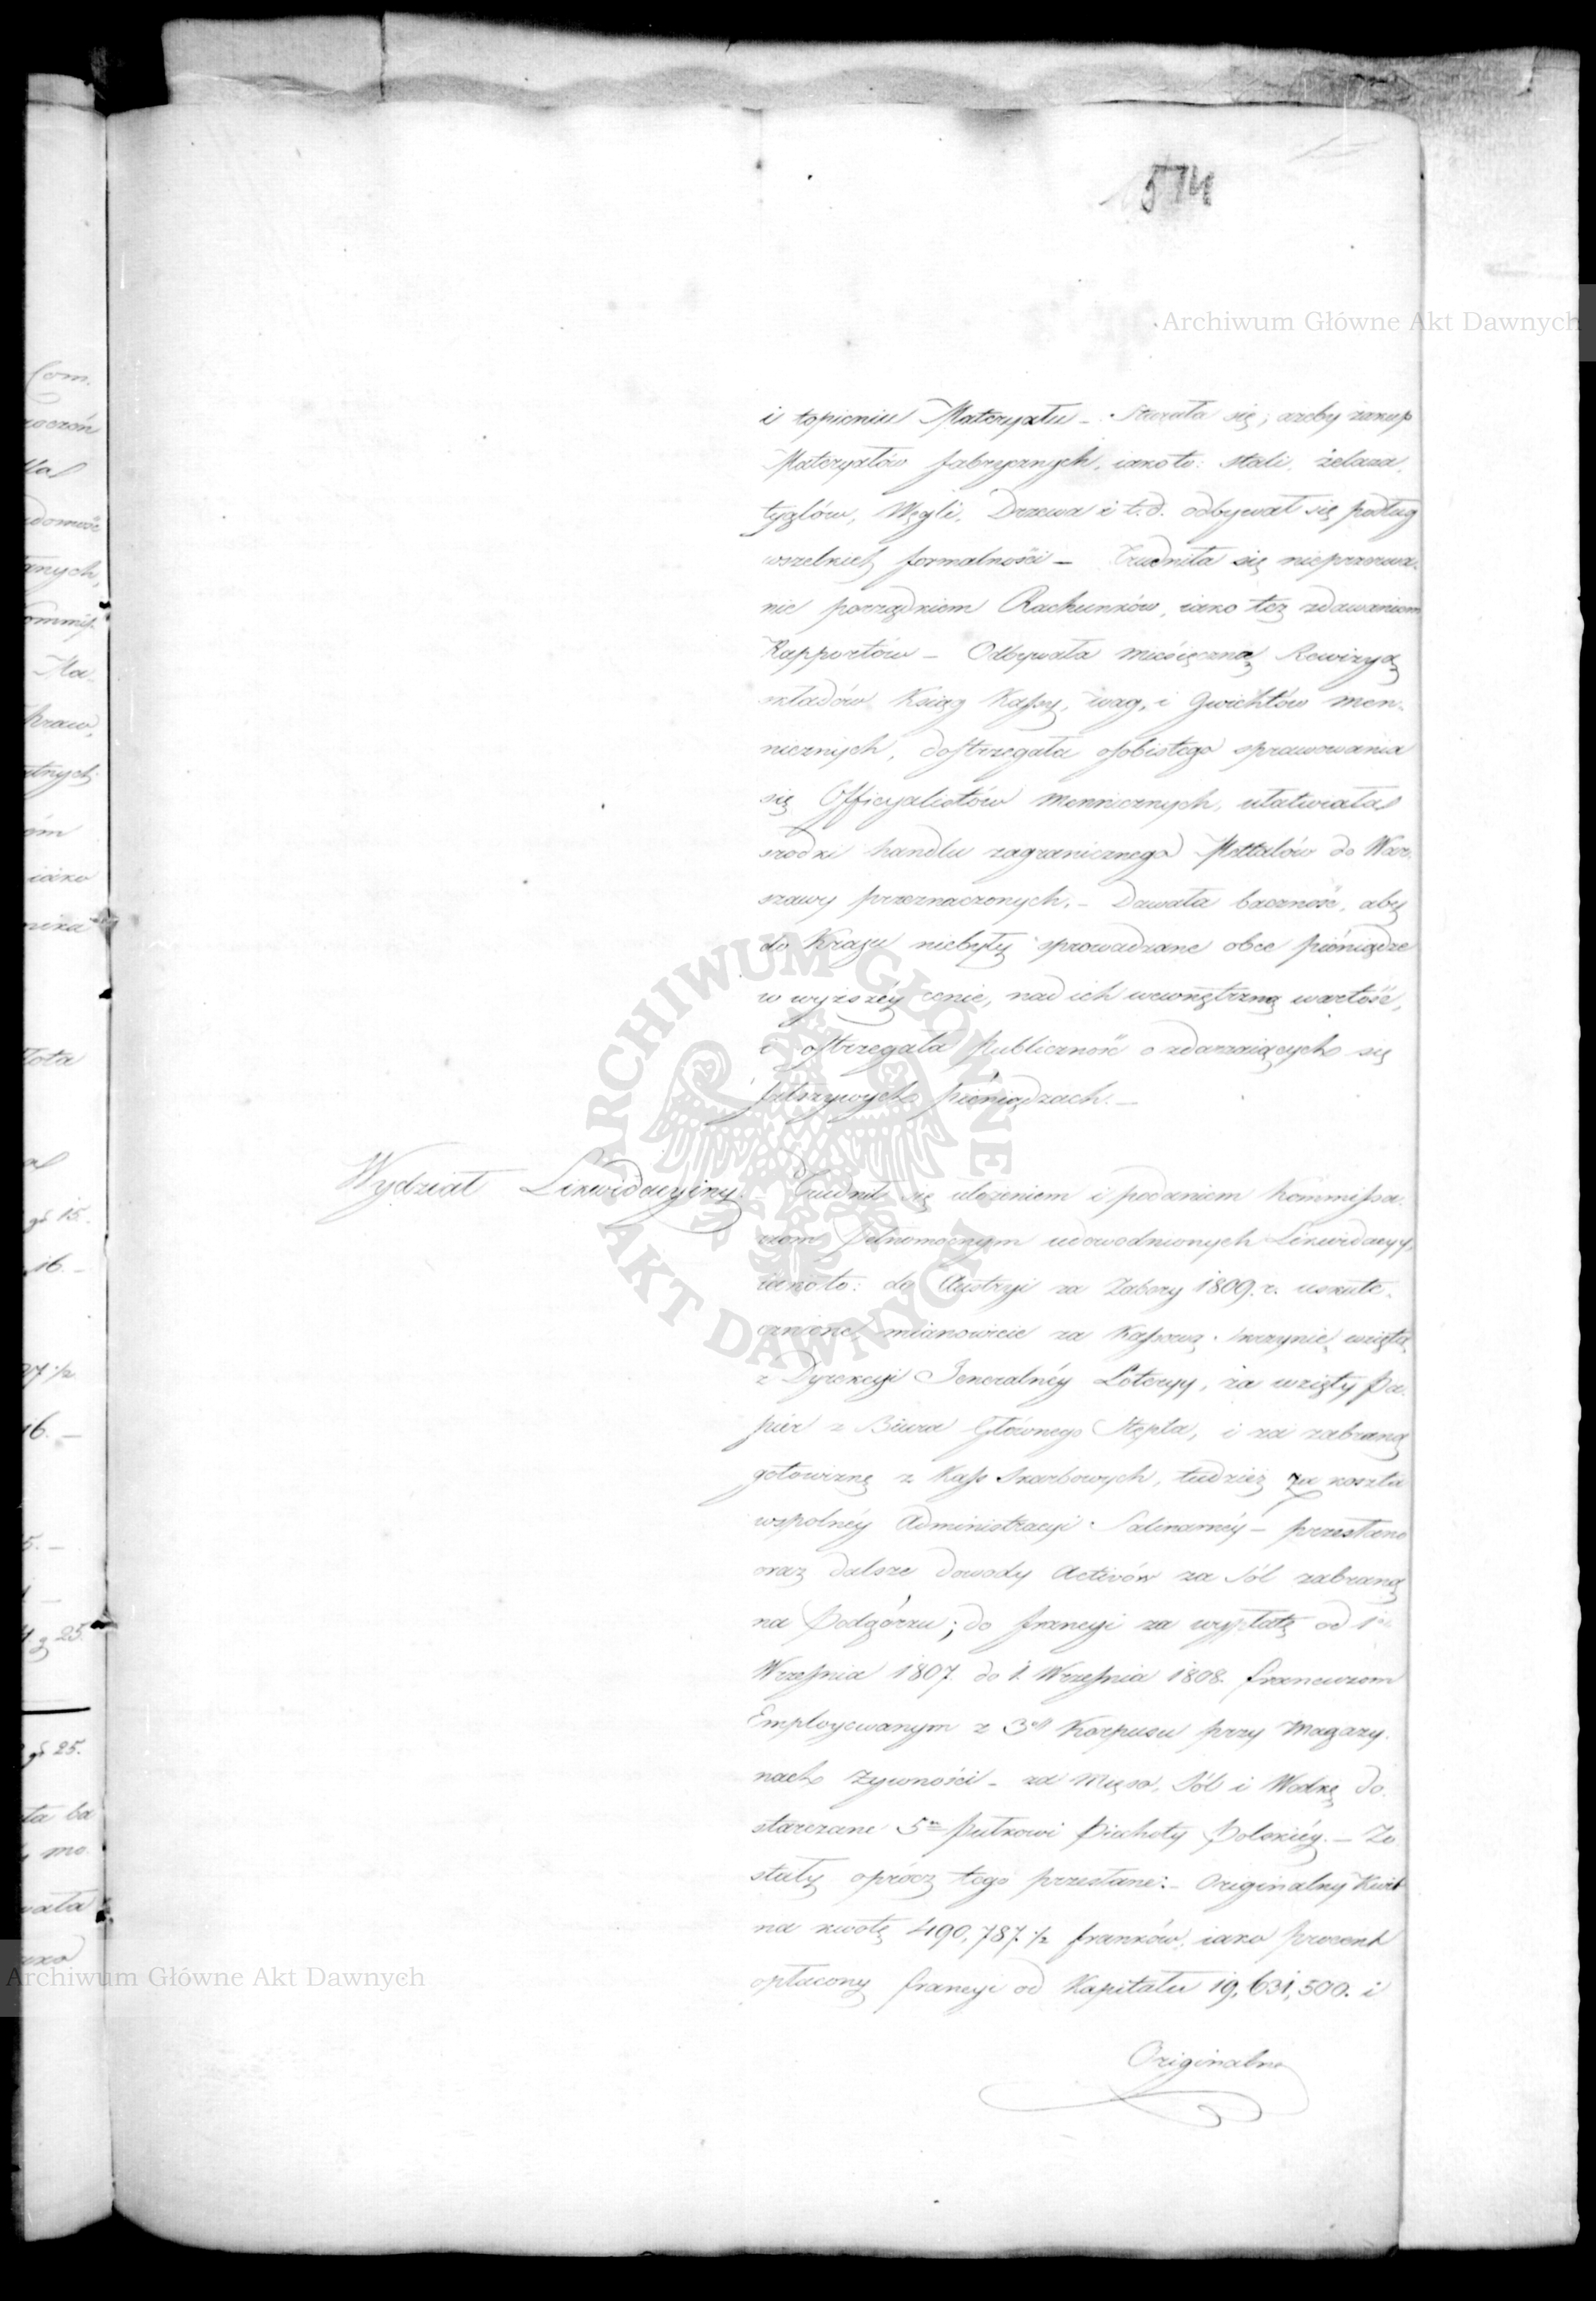 574
Archiwum Główne Akt Dawnych
i topieniu Materyału - Starała się, ażeby zakup
Materyałów fabrycznych, iako to: stali, żelaza,
tyglów, Węgli, Drzewa i t.d. odbywał się podług
wszelkich formalności - Trudniła się nieprzerwa-
nie porządkiem Rachunków, iako też zdawaniem
Rapportów - Odbywała Miesięczną Rewizyą
składów Ksiąg Kassy, wag, i Gwichtów men-
nicznych, dostrzegała osobistego sprawowania
się Officyalistów Mennicznych, ułatwiała
srodki handlu zagranicznego Mettalów do War-
szawy przeznaczonych. - Dawała baczność, aby
do Kraju niebyły sprowadzane obce pieniądze
w wyższéy cenie, nad ich wewnętrzną wartość,
i ostrzegała Publiczność o zdarzaiących się
fałszywych pieniądzach. -
Wydział Likwidacyiny. Trudnił się ułożeniem i podaniem Kommissa-
rzom pełnomocnym udowodnionych Likwidacyy,
iako to: do Austryi za Zabory 1809. r. uskute-
cznione mianowicie za Kassową skrzynię wziętą
z Dyrekcyi Jeneralnéy Loteryy, za wzięty Pa-
pier z Biura Głównego Stępla, i za zabraną
gotowiznę z Kass Skarbowych, tudzież za koszta
wspolnéy Administracyi Salinarnéy - przesłane
oraz dalsze dowody Activów za Sól zabraną
na Podgórzu; do Francyi za wypłatę od 1
Września 1807. do 1. Września 1808. francuzom
Employowanym z 3o Korpusu przy Magazy-
nach Żywności - za Mięso, Sól i Wodkę do-
starczane 5m Pułkowi Piechoty Polskiéy. - Zo-
stały oprócz tego przesłane: - Originalny Kwit
na kwotę 490,787 1/2 franków, iako procent
opłacony francyi od Kapitału 19,631,500. i
Originalne
Archiwum Główne Akt Dawnych
ARCHIWUM GŁÓWNE AKT DAWNYCH